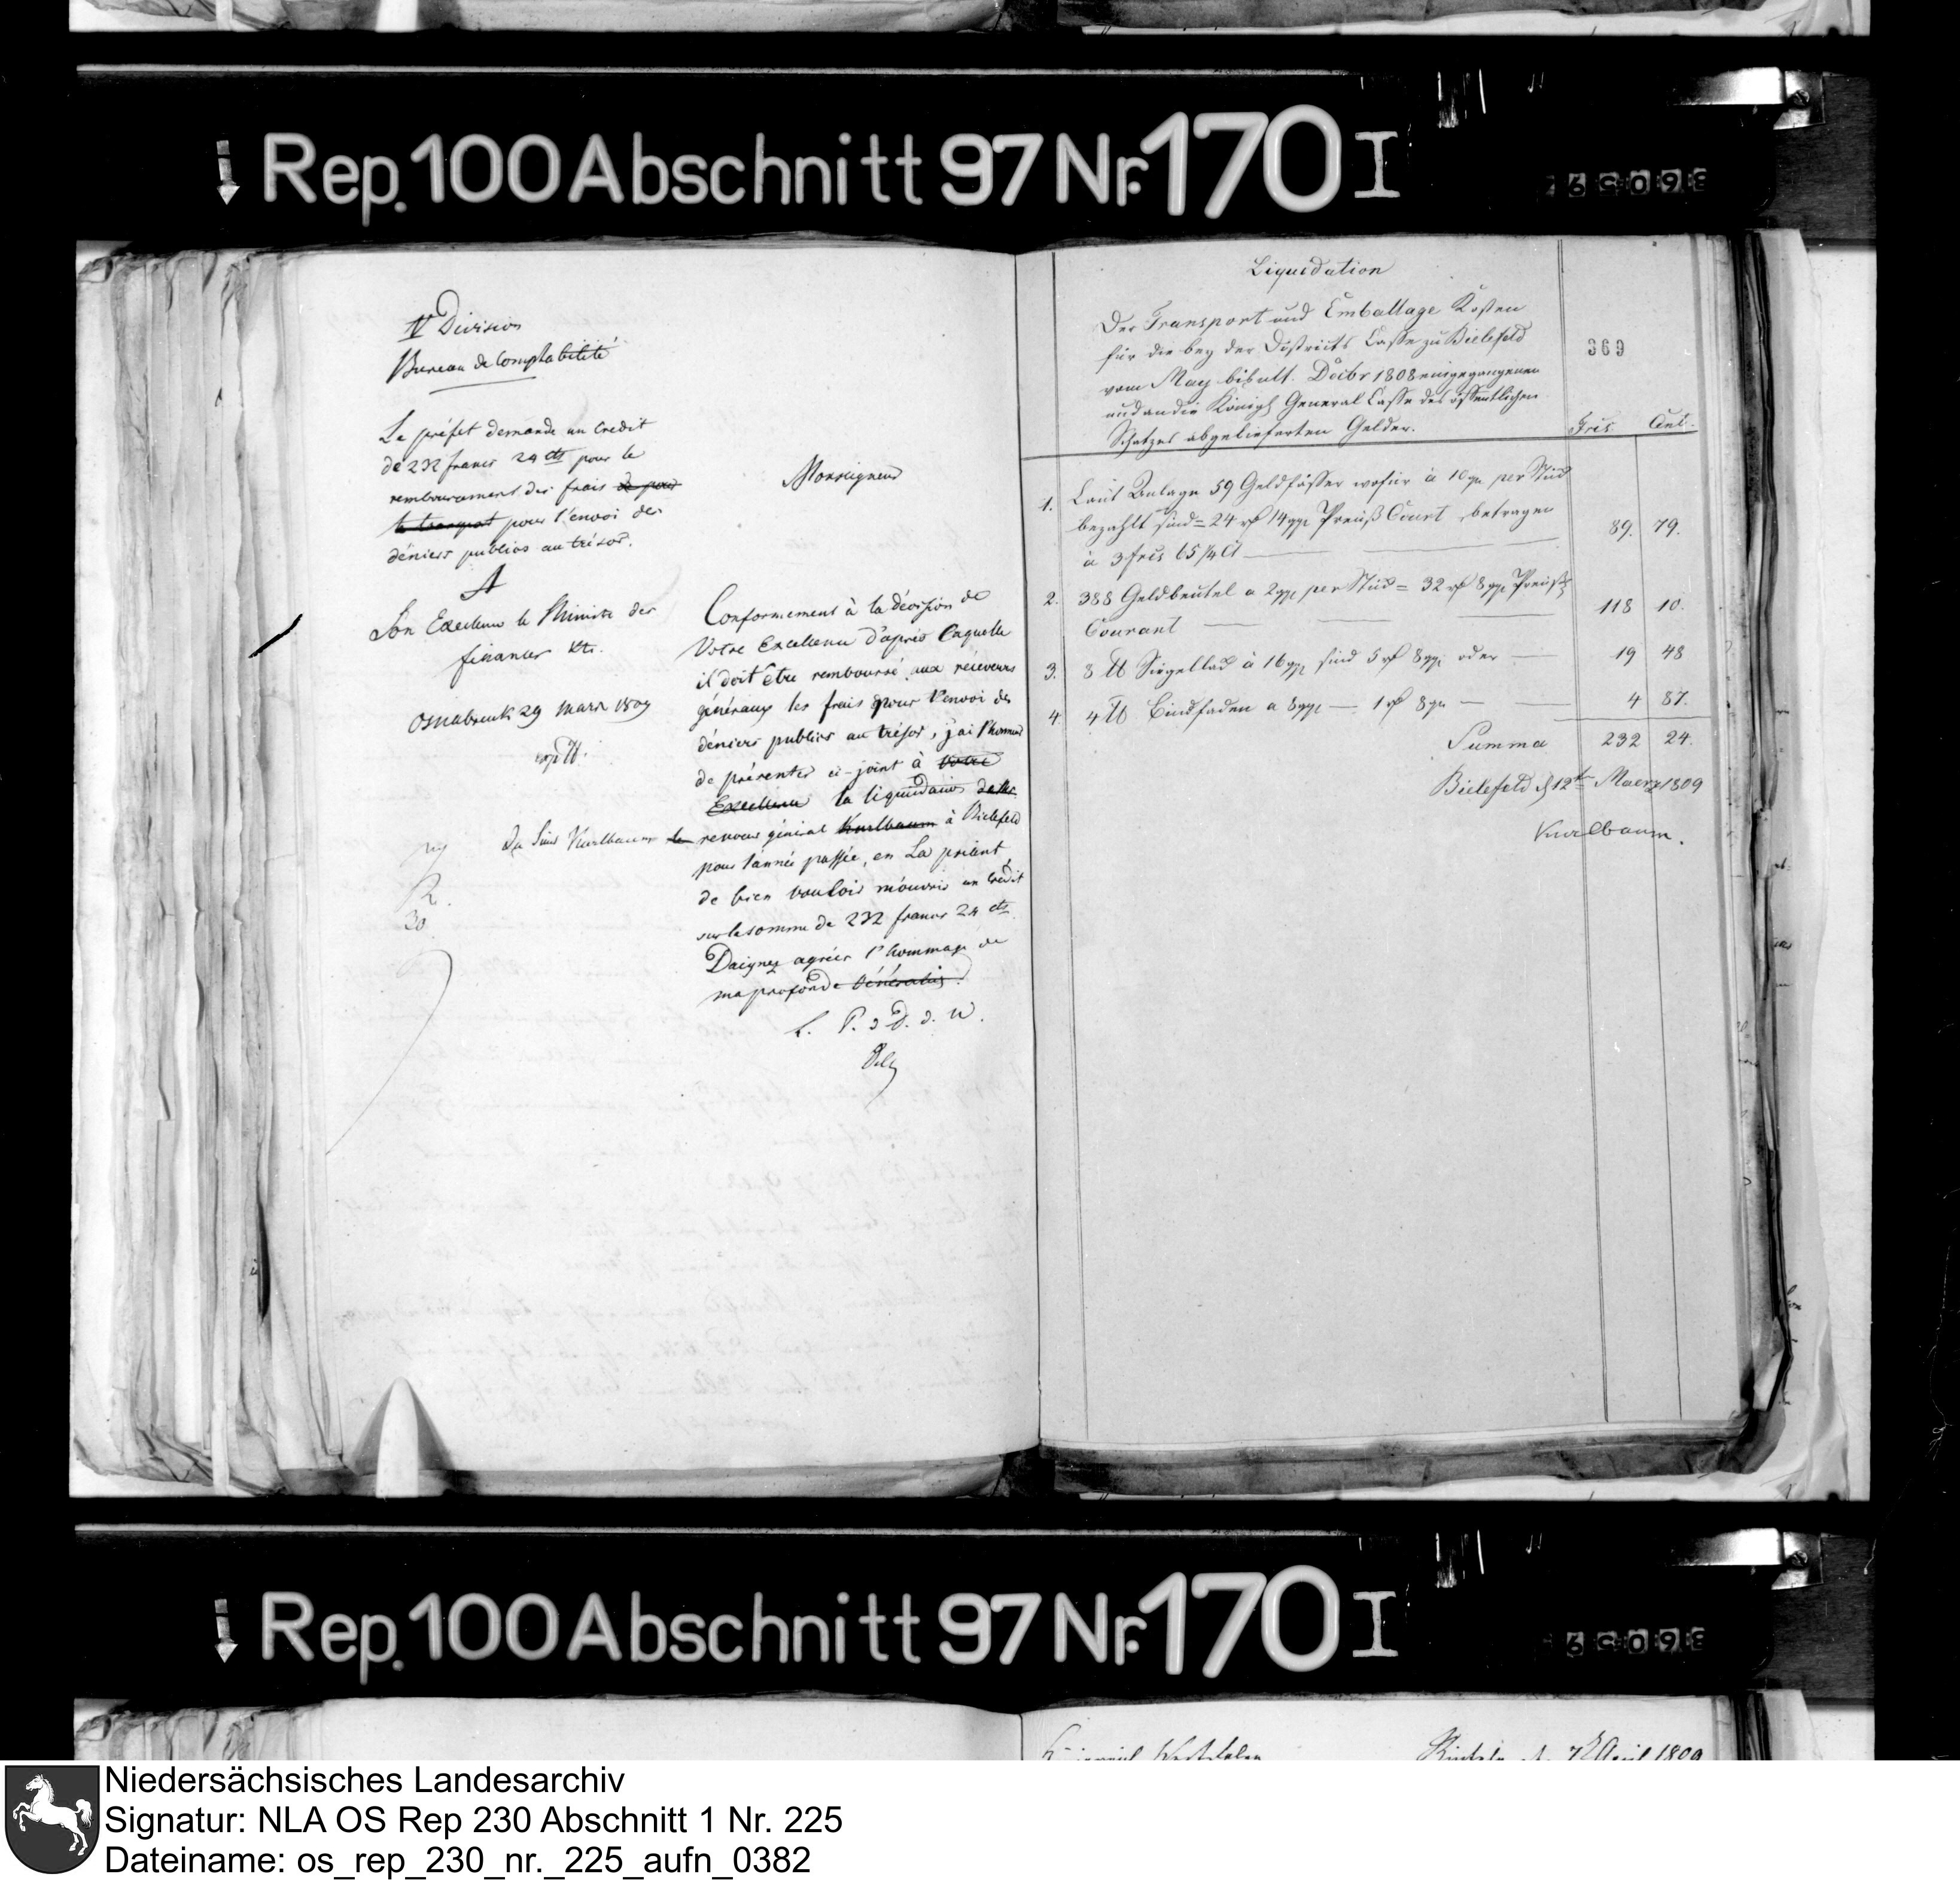 Rep. 100 Abschnitt 97 Nr. 170 I
IV Division
Bureau de Comptabilité
Le préfet demande un Credit
de 232 francs 24 cts pour le
remboursement des frais de pour
le transport pour l'envoi des
déniers publics au trésor.
A
Son Excellence le Ministre des
finances &c.
Osnabruck 29 Mars 1809
30
Monseigneur
Conformement à la décision de
Votre Excellence d'après laquelle
il doit être remboursé aux réceveurs
généraux les frais pour l'envoi des
déniers publics au trésor, j'ai l'honneur
de présenter ci-joint à Votre
Excellence la liquidation
du Sieur Kurlbaum le receveur général Kurlbaum à Bielefeld
pour l'année passée, en La priant
de bien vouloir m'ouvrir un Credit
sur la somme de 232 francs 24 cts.
Daignez agréer l'hommage de
ma profonde vénération.
L. P. d D. d. W.
Liquidation
Der Transport und Emballage Kosten
für die bey der Districts Casse zu Bielefeld
vom May bis ult. Decbr 1808 eingegangenen
und an die Königl General Casse des öffentlichen
Schatzes abgelieferten Gelder.
369
Frcs. Cent.
1. Laut Anlage 59 Geldfässer wofür à 10 ggr per Stück
bezahlt sind = 24 rthl 14 ggr Preuß Court, betragen
à 3 frcs 65 1/4 Ct 89. 79.
2. 388 Geldbeutel a 2 ggr per Stück = 32 rthl 8 ggr Preuß
Courant 118 10.
3. 8 lb Siegellack à 16 ggr sind 5 rthl 8 ggr oder 19 48
4. 4 lb Bindfaden a 8 ggr — 1 rthl 8 ggr 4 87.
Summa 232 24.
Bielefeld d 12t Maerz 1809
Kurlbaum.
Rep. 100 Abschnitt 97 Nr. 170 I
Niedersächsisches Landesarchiv
Signatur: NLA OS Rep 230 Abschnitt 1 Nr. 225
Dateiname: os_rep_230_nr._225_aufn_0382